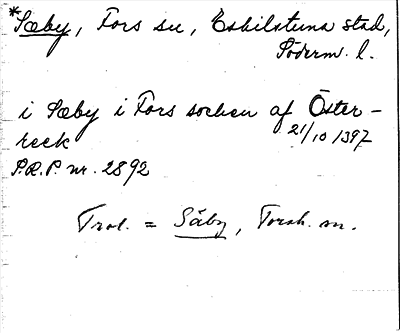 *Sæby, Fors sn, Eskilstuna stad,
Söderm. l.
i Sæby i Fors sochen af Öster-
reek
21/10 1397
P.R.P. nr. 2892
Trol. = Säby, Torsh. sn.